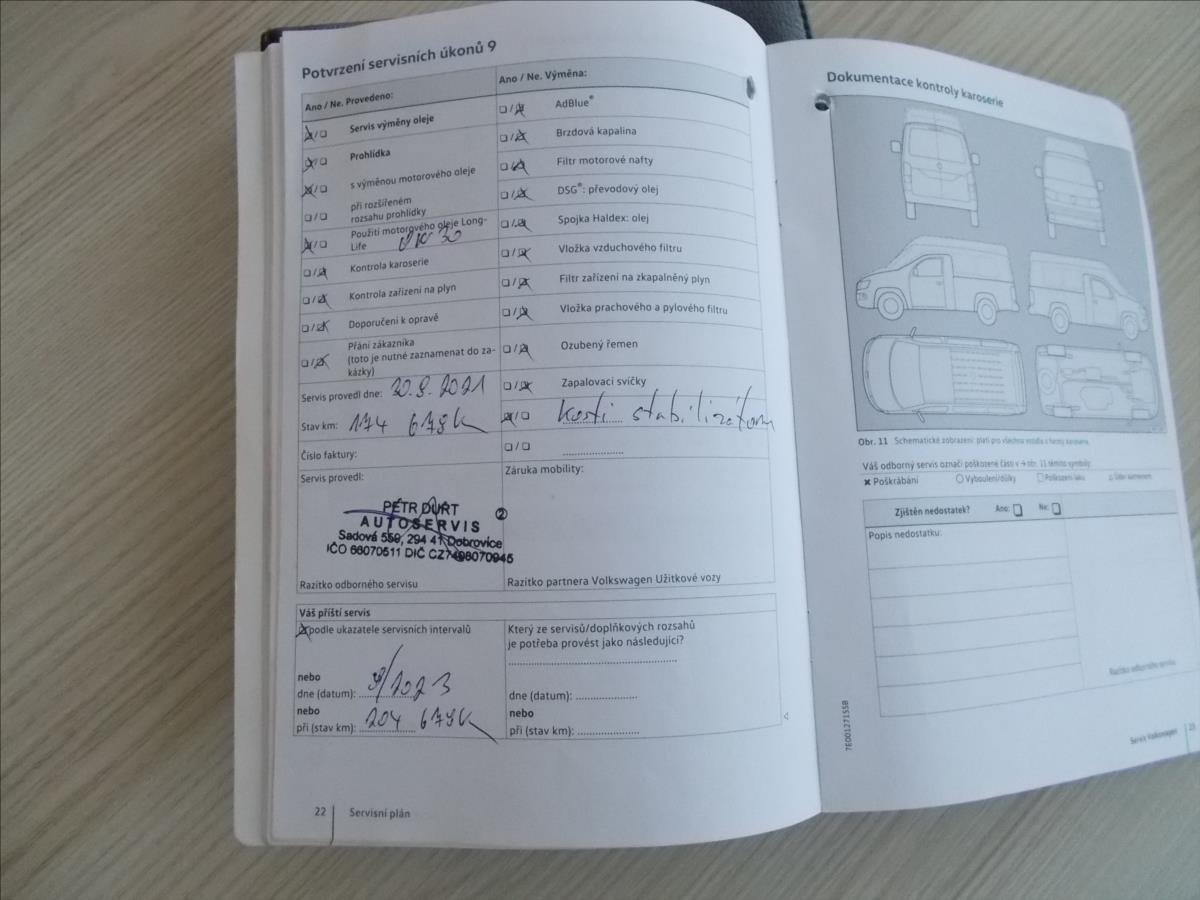 Potvrzení servisních úkonů 9
Ano / Ne. Provedeno:
Servis výměny oleje
Prohlídka
s výměnou motorového oleje
při rozšířeném
rozsahu prohlídky
Použití motorového oleje Long-
Life
Kontrola karoserie
Kontrola zařízení na plyn
Doporučení k opravě
Přání zákazníka
(toto je nutné zaznamenat do za-
kázky)
Servis provedl dne: 30.9.2021
Stav km: 174 678K
Číslo faktury:
Servis provedl:
PETR DURT
AUTOSERVIS
Sadová 559, 294 41 Dobrovice
IČO 66070511 DIČ CZ7408070945
②
Razítko odborného servisu
Ano / Ne. Výměna:
AdBlue®
Brzdová kapalina
Filtr motorové nafty
DSG®: převodový olej
Spojka Haldex: olej
Vložka vzduchového filtru
Filtr zařízení na zkapalněný plyn
Vložka prachového a pylového filtru
Ozubený řemen
Zapalovací svíčky
kosti stabilizátoru
Záruka mobility:
Razítko partnera Volkswagen Užitkové vozy
Váš příští servis
podle ukazatele servisních intervalů
nebo
dne (datum): 9/2023
nebo
při (stav km): 204 678K
Který ze servisů/doplňkových rozsahů
je potřeba provést jako následující?
dne (datum):
nebo
při (stav km):
22 Servisní plán
Dokumentace kontroly karoserie
Obr. 11 Schematické zobrazení: platí pro všechna vozidla a formy karoserie.
Váš odborný servis označí poškozené části v → obr. 11 těmito symboly:
Poškrábání
Vyboulení/důlky
Poškození laku
Úder kamenem
Zjištěn nedostatek? Ano: Ne:
Popis nedostatku:
Razítko odborného servisu
7E0012715SB
Servis Volkswagen 23